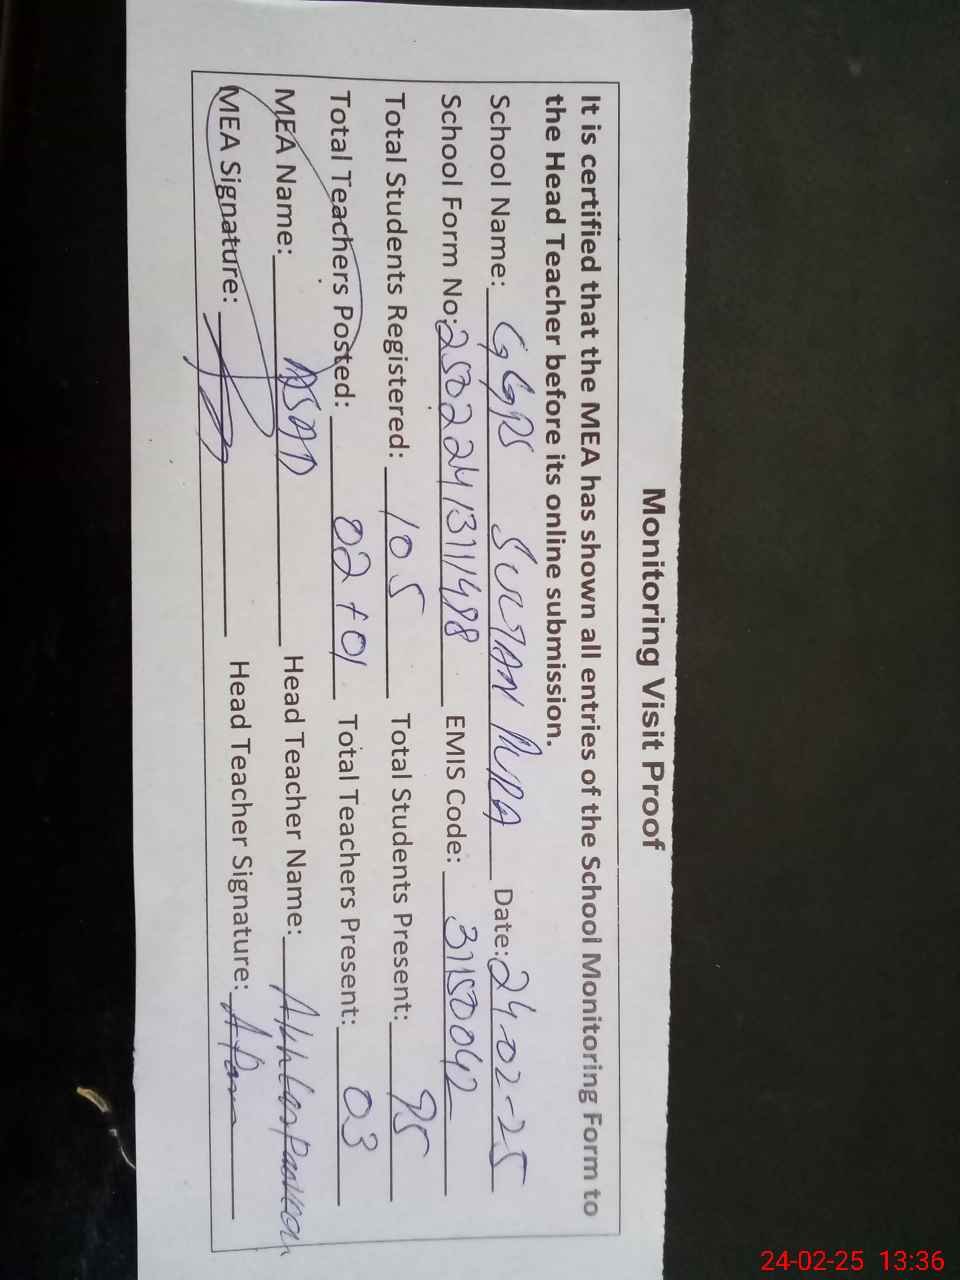 Monitoring Visit Proof
It is certified that the MEA has shown all entries of the School Monitoring Form to
the Head Teacher before its online submission.
School Name: GGPS SULTAN PURA Date: 24-02-25
School Form No: 2502241311498 EMIS Code: 31150042
Total Students Registered: 105 Total Students Present: 95
Total Teachers Posted: 02+01 Total Teachers Present: 03
MEA Name: ASAD Head Teacher Name: Akhtar Parveen
MEA Signature: Head Teacher Signature:
24-02-25 13:36